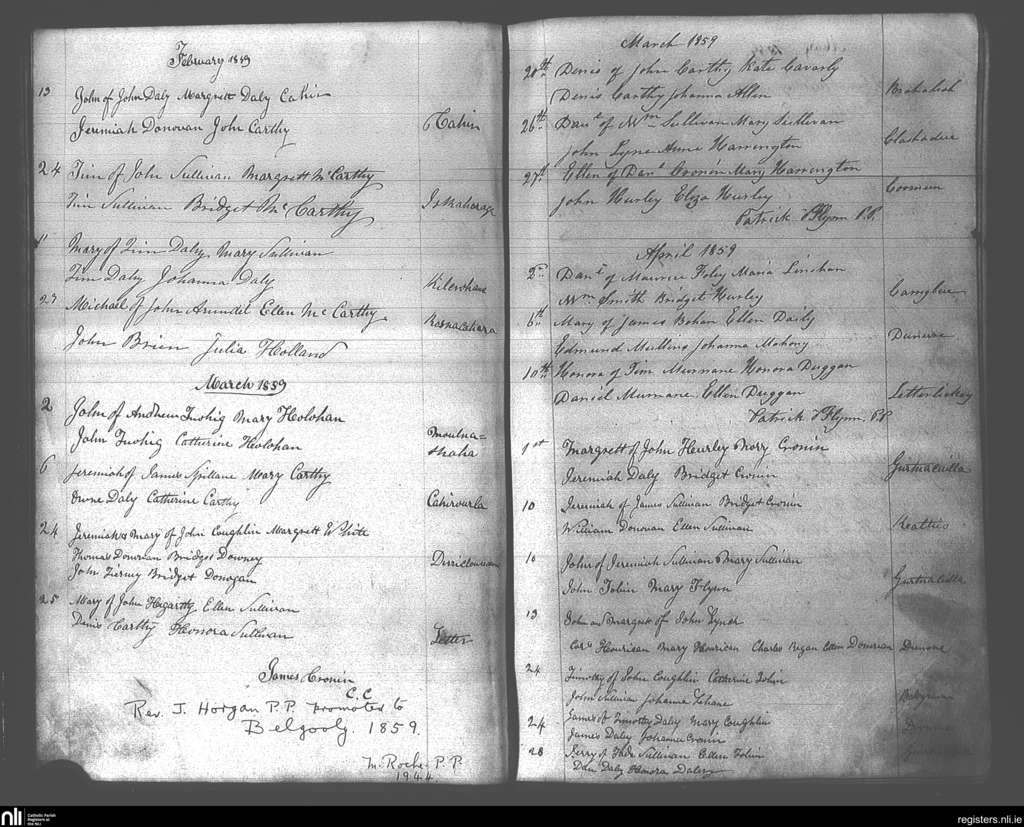 February 1859
13 John of John Daly Margrett Daly Cahir
Jeremiah Donovan John Carthy Cahir
24 Tim of John Sullivan Margrett McCarthy
Tim Sullivan Bridget McCarthy
Mary of Tim Daly Mary Sullivan
Tim Daly Johanna Daly
27 Michael of John Arundel Ellen McCarthy
John Brien Julia Holland
March 1859
2 John of Andrew Twohig Mary Holohan
John Twohig Catherine Holohan
6 Jeremiah of James Spillane Mary Carthy
Owne Daly Catherine Carthy Cahirourla
24 Jeremiah & Mary of John Coughlin Margrett White
Thomas Donovan Bridget Downey
John Tierny Bridget Donogan
25 Mary of John Hegarthy Ellen Sullivan
Denis Carthy Honora Sullivan Letter
James Cronin
C.C
Rev. J. Horgan P.P. promoted to
Belgooly. 1859.
M. Roche P.P.
1944.
March 1859
20th Denis of John Carthy Kate
Denis Carthy Johanna Allen
26th Danl of Wm Sullivan Mary Sullivan
John Lyne Anne Harrington
27th Ellen of Danl Cronin Mary Harrington
John Hurley Eliza Hurley
Patrick O'Flynn P.P.
April 1859
2nd Danl of Maurice Foley Maria Linehan
Wm Smith Bridget Hurley
6th Mary of James Bohan Ellen Daily
Edmund Mullins Johanna Mahony
10th Honora of Tim Murnane Honora Duggan
Daniel Murnane Ellen Duggan Letterlickey
Patrick O'Flynn P.P.
1st Margrett of John Hurley Mary Cronin
Jeremiah Daly Bridget Cronin
10 Jeremiah of James Sullivan Bridget Cronin
William Donovan Ellen Sullivan
10 John of Jeremiah Sullivan Mary Sullivan
John Tobin Mary Flynn
13 John and Margret of John Lynch
Hourican Mary Hourican Charles Regan Ellen Donovan
24 Timothy of John Coughlin Catherine Tobin
John Sullivan Johanna
24 James of Timothy Daly Mary Coughlin
James Daly Johanna Cronin
28 Jerry of Sullivan Ellen Tobin
Dan Daly Honora Daly
nli
Catholic Parish
Registers at
the NLI
registers.nli.ie